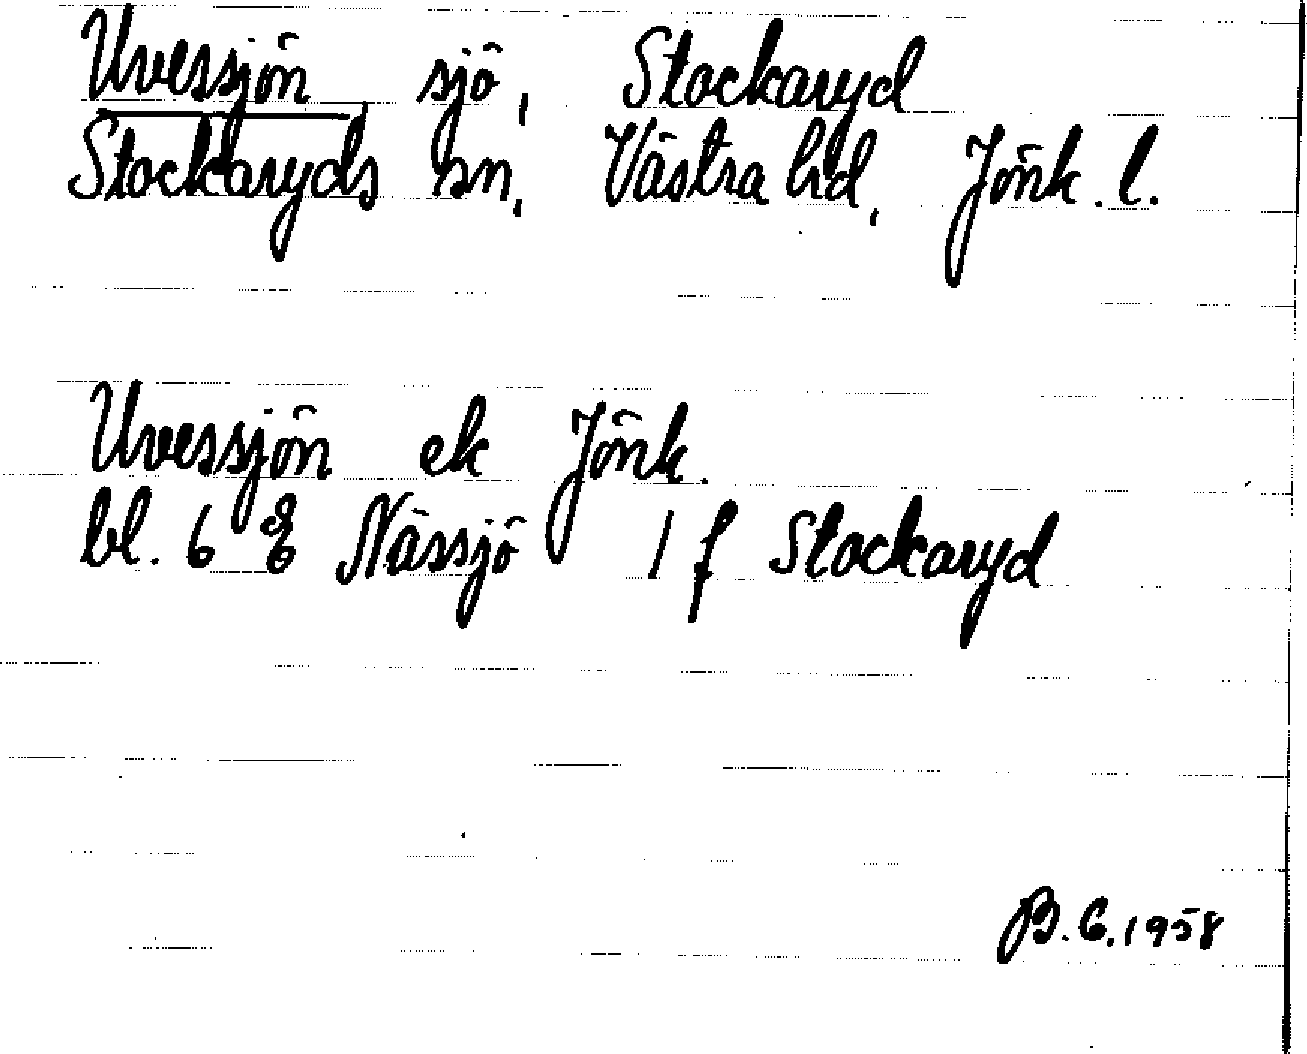 Uvessjön sjö, Stockaryd
Stockaryds sn, Västra hd, Jönk. l.
Uvessjön ek Jönk.
bl. 6 & Nässjö 1 f Stockaryd
B.G. 1958